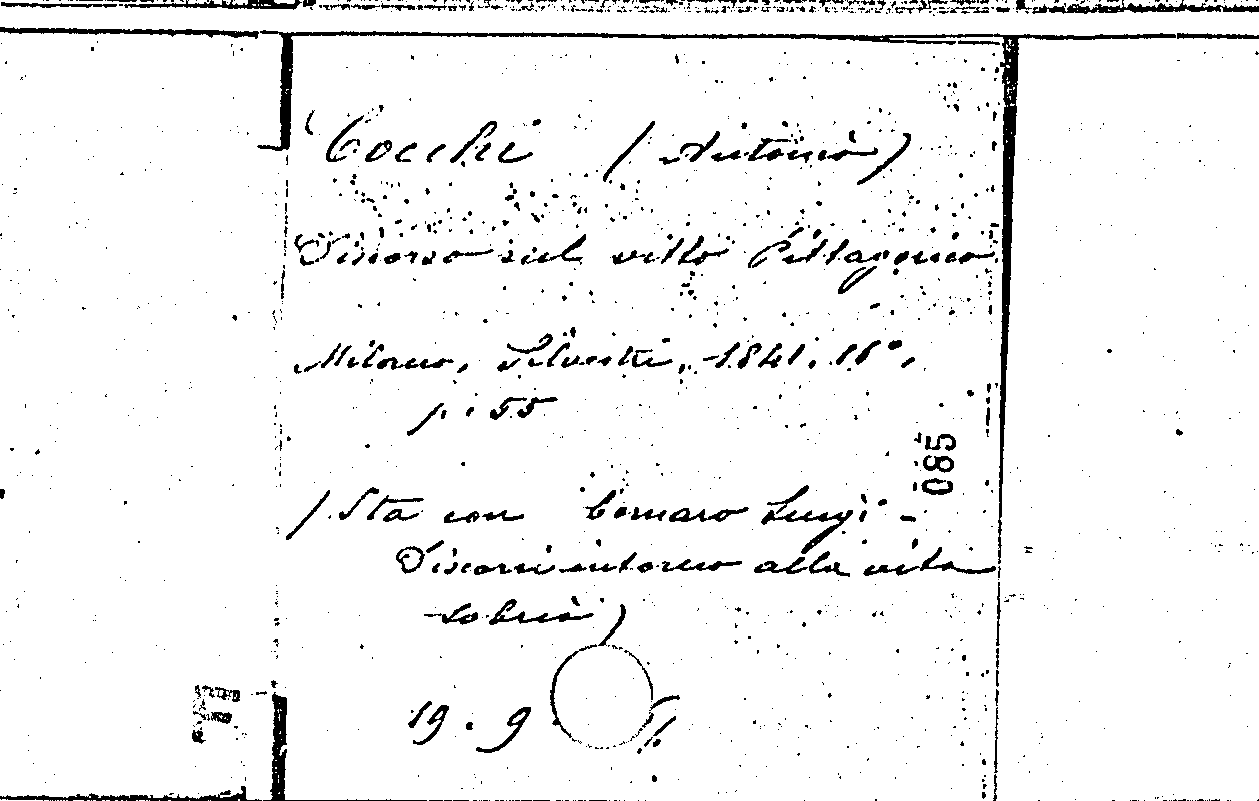 Cocchi (Antonio)
Discorso sul vitto Pittagorico
Milano, Silvestri, 1841, 16°,
p. 55
(Sta con Cornaro Luigi -
Discorsi intorno alla vita
sobria)
19. 9.
085